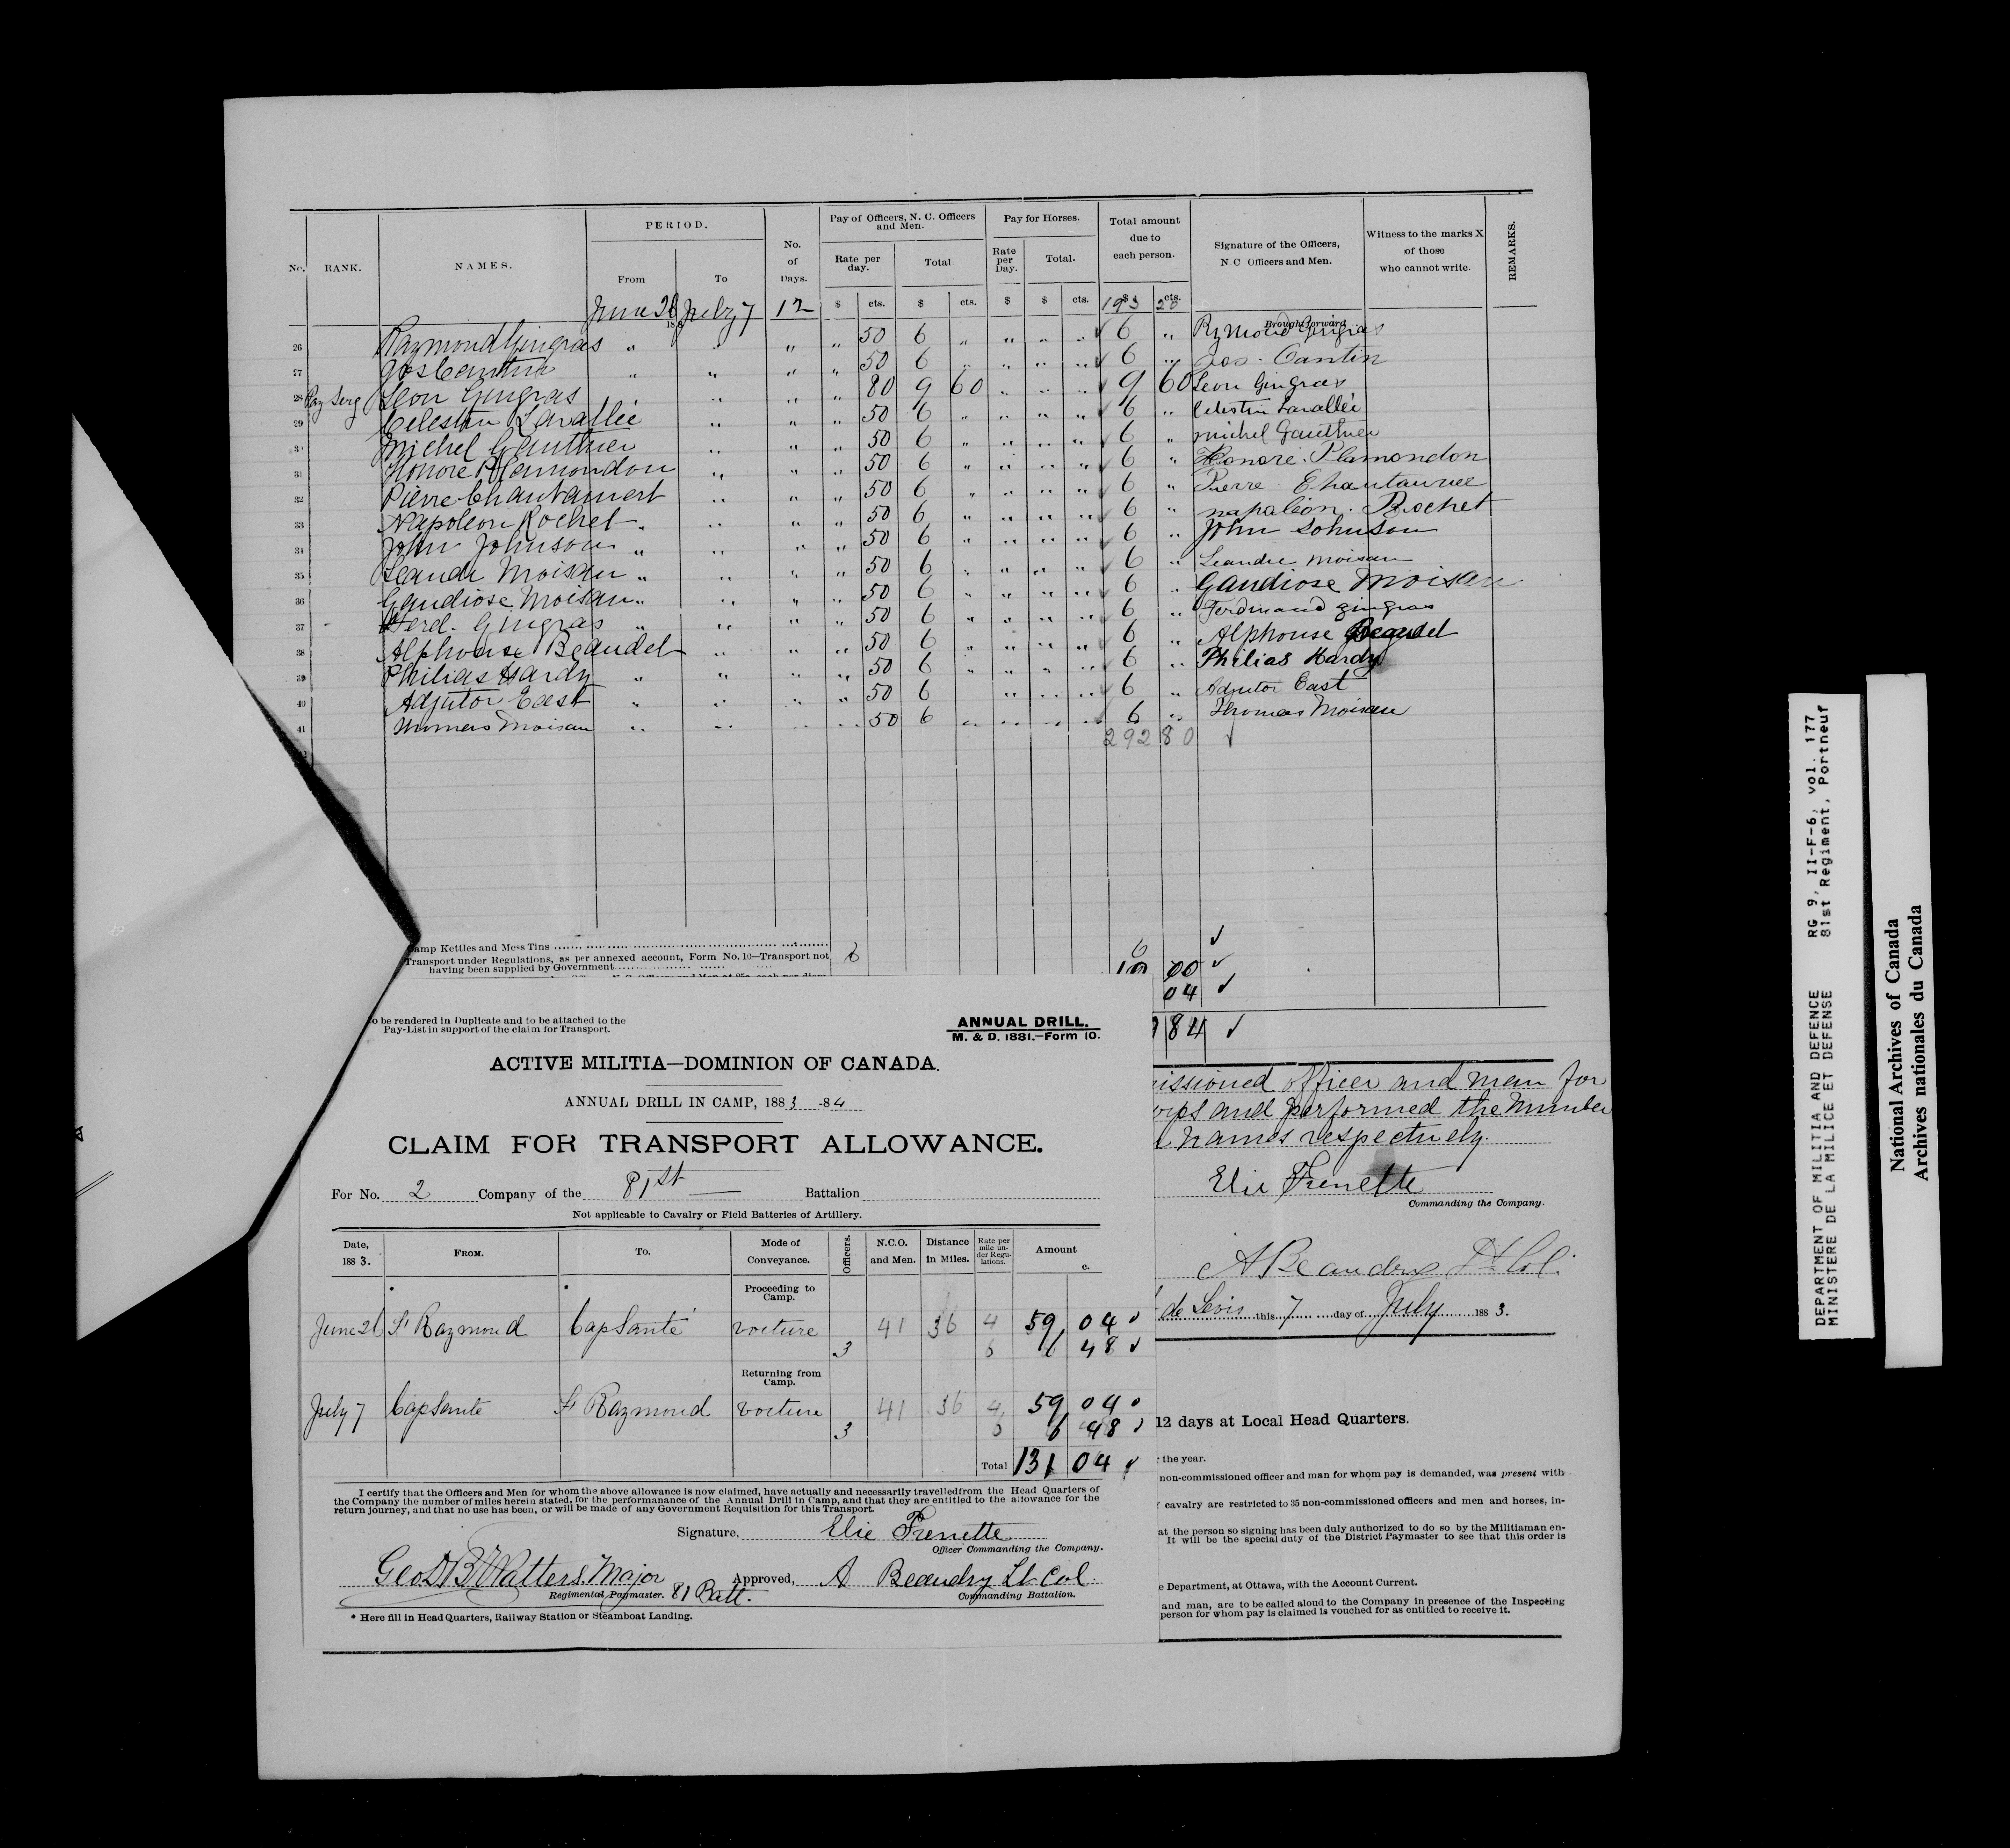 No. RANK. NAMES. PERIOD. No. of Days. Pay of Officers, N. C. Officers and Men. Pay for Horses. Total amount due to each person. Signature of the Officers, N C Officers and Men. Witness to the marks X of those who cannot write. REMARKS.
From To Rate per day. Total Rate per Day. Total.
$ cts. $ cts. $ $ cts. $ cts.
June 26 July 7 12 193 20
188 Brought forward
26 Raymond Gingras " " " " 50 6 " " " " 6 " Rymond Gingras
27 Jos Cantin " " " " 50 6 " " " " 6 " Jos. Cantin
28 Pay Serg Leon Gingras " " " 80 9 60 " " " 9 60 Leon Gingras
29 Celestin Lavallée " " " 50 6 " " " " 6 " Celestin Lavallée
30 Michel Gauthier " " " 50 6 " " " " 6 " michel Gauthier
31 Honore Plamondon " " " 50 6 " " " " 6 " Honoré Plamondon
32 Pierre " " " 50 6 " " " " 6 " Pierre
33 Napoleon Rochet " " " " 50 6 " " " " 6 " napoléon. Rochet
34 John Johnson " " " " 50 6 " " " " 6 " John Johnson
35 Leandre Moisan " " " " 50 6 " " " " 6 " Leandre Moisan
36 Gaudiose Moisan " " " " 50 6 " " " " 6 " Gaudiose Moisan
37 Ferd. Gingras " " " " 50 6 " " " " 6 " Ferdinand gingras
38 Alphonse Beaudet " " " 50 6 " " " " 6 " Alphonse Beaudet
39 Philias Hardy " " " " 50 6 " " " " 6 " Philias Hardy
40 Adjutor East " " " " 50 6 " " " 6 " Adjutor East
41 Thomas Moisan " " " " 50 6 " " " " 6 " Thomas Moisan
292 80 ✓
Camp Kettles and Mess Tins
Transport under Regulations, as per annexed account, Form No. 10—Transport not
having been supplied by Government
00 ✓
04 ✓
84 ✓
To be rendered in Duplicate and to be attached to the
Pay-List in support of the claim for Transport.
ANNUAL DRILL.
M. & D. 1881.—Form 10.
ACTIVE MILITIA—DOMINION OF CANADA.
ANNUAL DRILL IN CAMP, 1883-84
CLAIM FOR TRANSPORT ALLOWANCE.
For No. 2 Company of the 81st Battalion
Not applicable to Cavalry or Field Batteries of Artillery.
Date, 1883. FROM. TO. Mode of Conveyance. Officers. N.C.O. and Men. Distance in Miles. Rate per mile under Regulations. Amount
c.
* * Proceeding to Camp.
June 26 St Raymond Cap Santé voiture 41 36 4 59 04 ✓
3 6 6 48 ✓
Returning from Camp.
July 7 Cap Santé St Raymond voiture 41 36 4 59 04 ✓
3 6 6 48 ✓
Total 131 04 ✓
I certify that the Officers and Men for whom the above allowance is now claimed, have actually and necessarily travelledfrom the Head Quarters of
the Company the number of miles herein stated, for the performanance of the Annual Drill in Camp, and that they are entitled to the allowance for the
return journey, and that no use has been, or will be made of any Government Requisition for this Transport.
Signature, Elie Frenette
Officer Commanding the Company.
Geo B Watters. Major Approved, A Beaudry Lt. Col.
Regimental Paymaster. 81 Batt. Commanding Battalion.
* Here fill in Head Quarters, Railway Station or Steamboat Landing.
issioned officer and men for
orps and performed the number
names respectively.
Elie Frenette
Commanding the Company.
A Beaudry Lt Col.
de Levis this 7 day of July 1883.
12 days at Local Head Quarters.
the year.
non-commissioned officer and man for whom pay is demanded, was present with
cavalry are restricted to 35 non-commissioned officers and men and horses, in-
at the person so signing has been duly authorized to do so by the Militiaman en-
It will be the special duty of the District Paymaster to see that this order is
e Department, at Ottawa, with the Account Current.
and man, are to be called aloud to the Company in presence of the Inspecting
person for whom pay is claimed is vouched for as entitled to receive it.
DEPARTMENT OF MILITIA AND DEFENCE RG 9, II-F-6, vol. 177
MINISTERE DE LA MILICE ET DEFENSE 81st Regiment, Portneuf
National Archives of Canada
Archives nationales du Canada